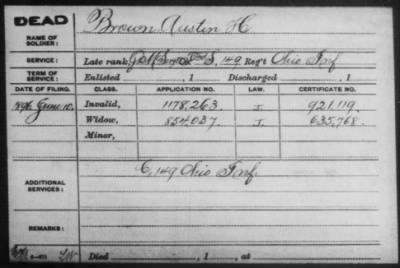 DEAD
Brown Austin H.
NAME OF SOLDIER:
SERVICE: Late rank, Q.M. Serg't 149 Reg't Ohio Inf
TERM OF SERVICE: Enlisted , 1 Discharged , 1
DATE OF FILING. CLASS. APPLICATION NO. LAW. CERTIFICATE NO.
1896 June 10. Invalid, 1178,263. J. 921,119.
Widow, 854,037 J. 635,768.
Minor,
ADDITIONAL SERVICES: C, 149 Ohio Inf.
REMARKS:
Died , 1 , at